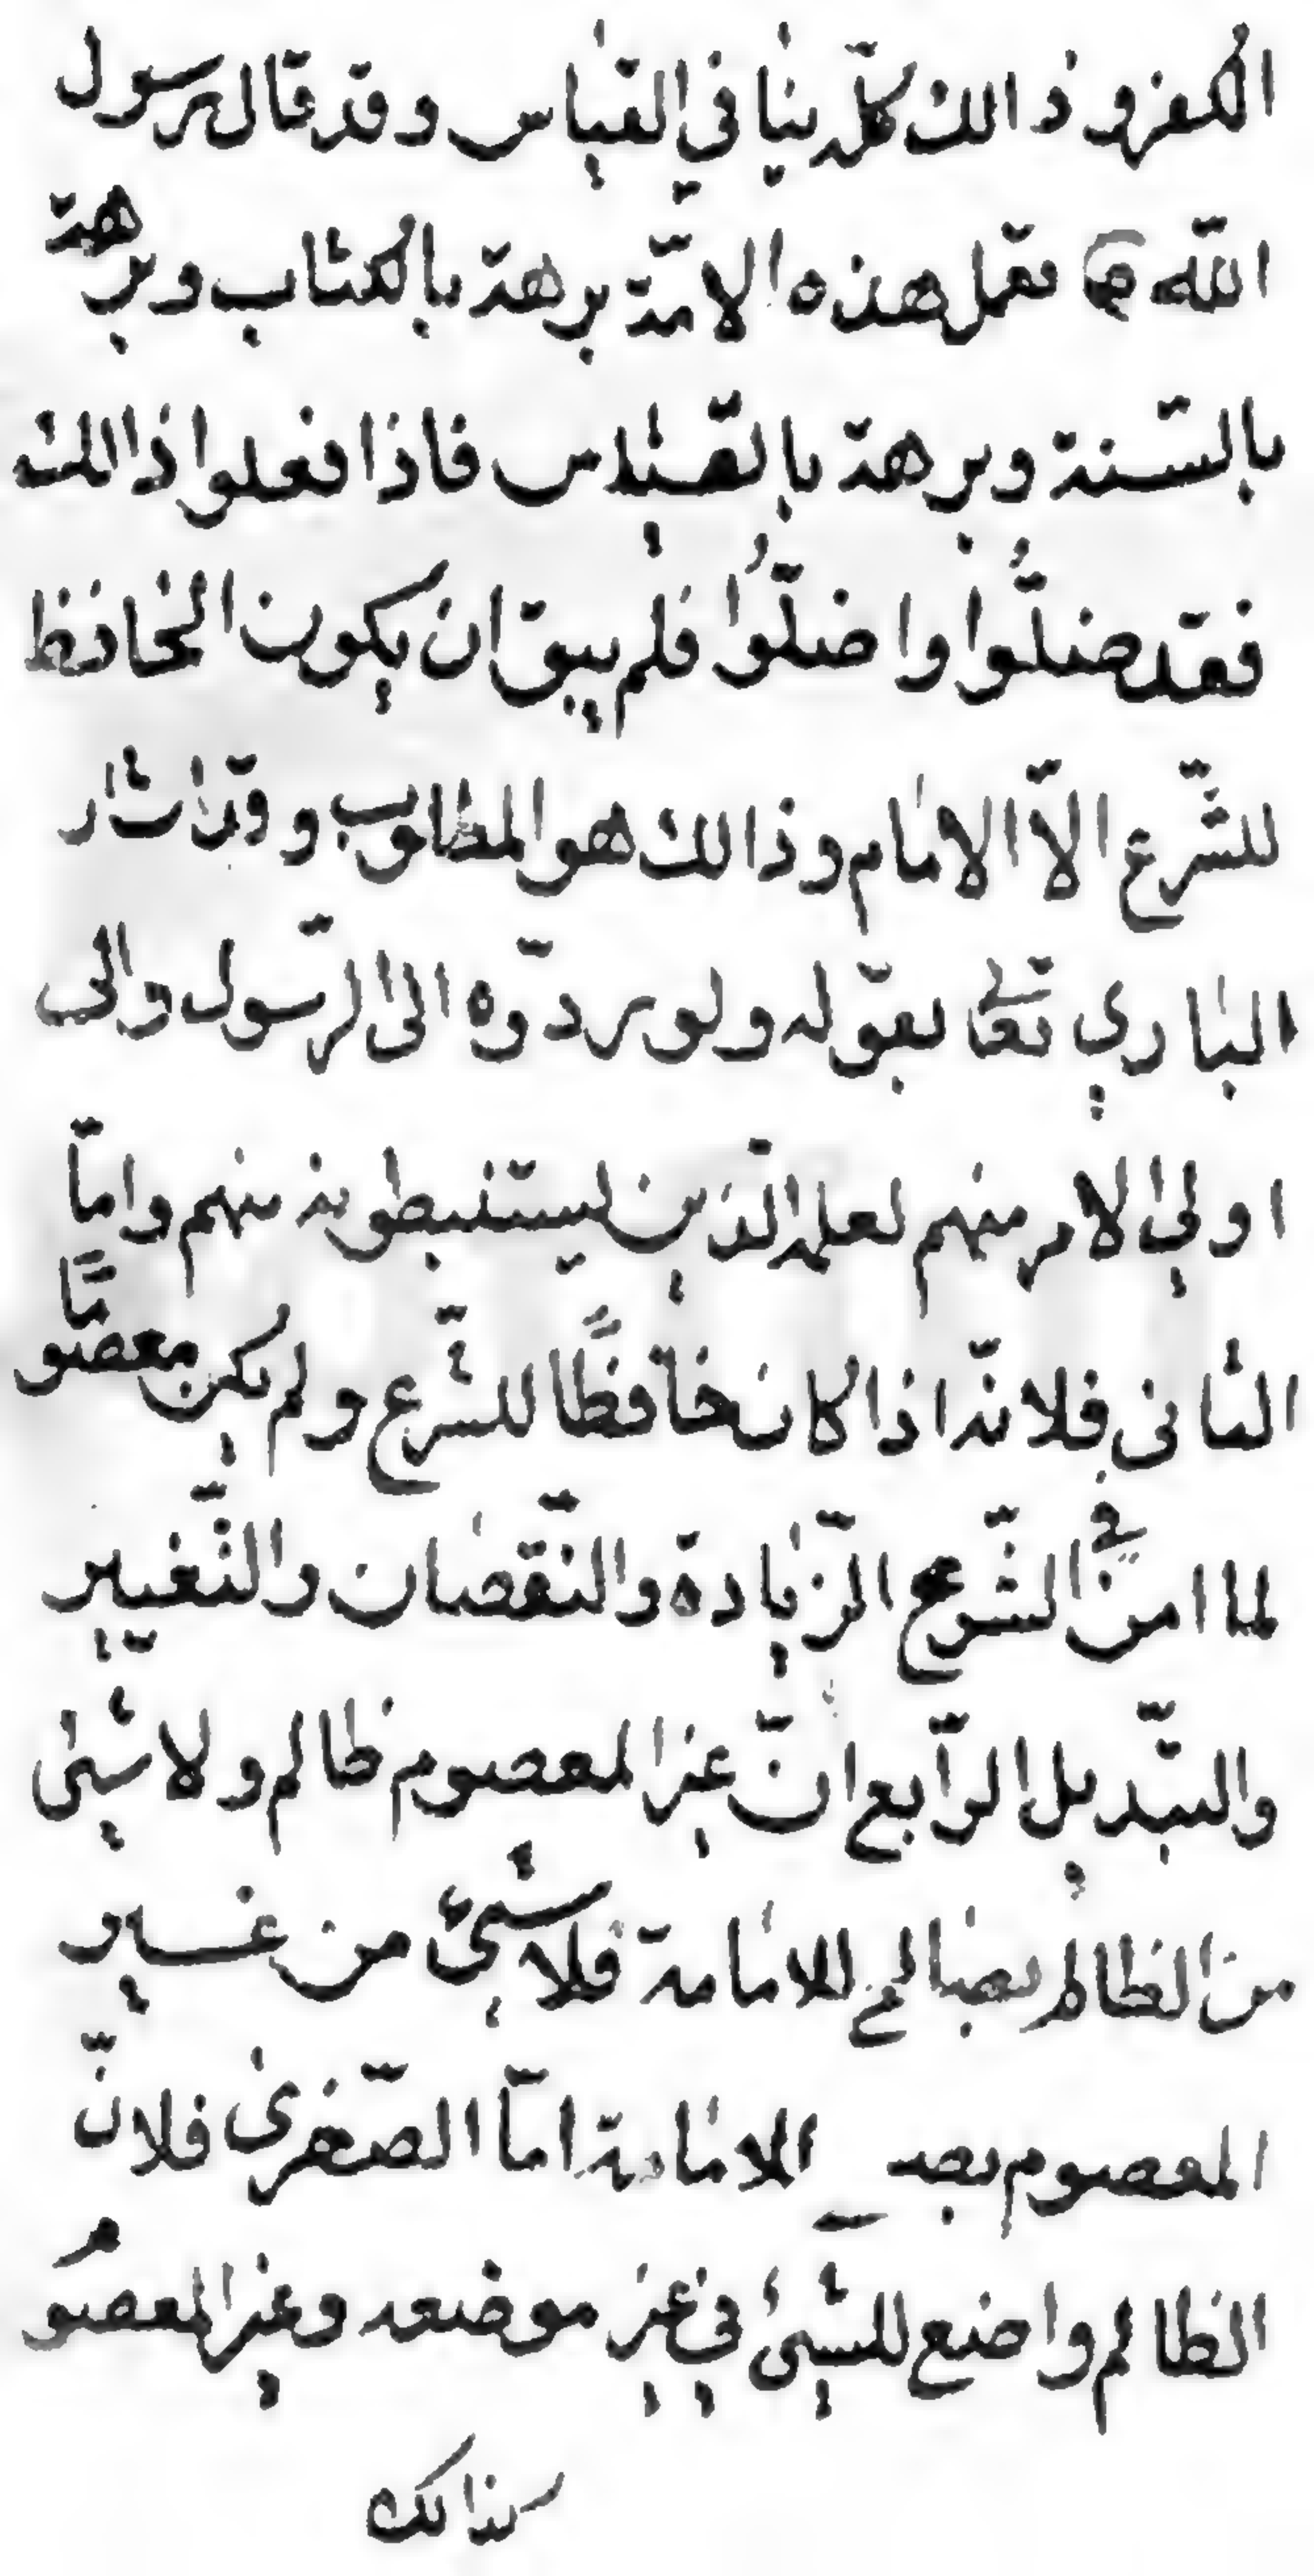 الكفر وذالك كلّه ينافي القياس وقد قال رسول
الله ص تعمل هذه الامّة برهة بالكتاب وبرهة
بالسّنة وبرهة بالقياس فاذا فعلوا ذالك
فقد ضلّوا واضلّوا فلم يبق ان يكون الحافظ
للشّرع الاّ الامام وذالك هو المطلوب وقد اشار
الباري تعا بقوله ولو ردّوه الى الرّسول والى
اولي الامر منهم لعلمه الّذين يستنبطونه منهم وامّا
الثاني فلانّه اذا كان حافظًا للشّرع ولم يكن معصومًا
لما امن في الشّرع الزّيادة والنّقصان والتّغيير
والتبّديل الرّابع انّ غير المعصوم ظالم ولا شيئ
من الظالم بصالح للامامة فلا شيئ من غير
المعصوم بصـ للامامة امّا الصّغرى فلانّ
الظالم واضع للشّيئ في غير موضعه وغير المعصو
كذالك